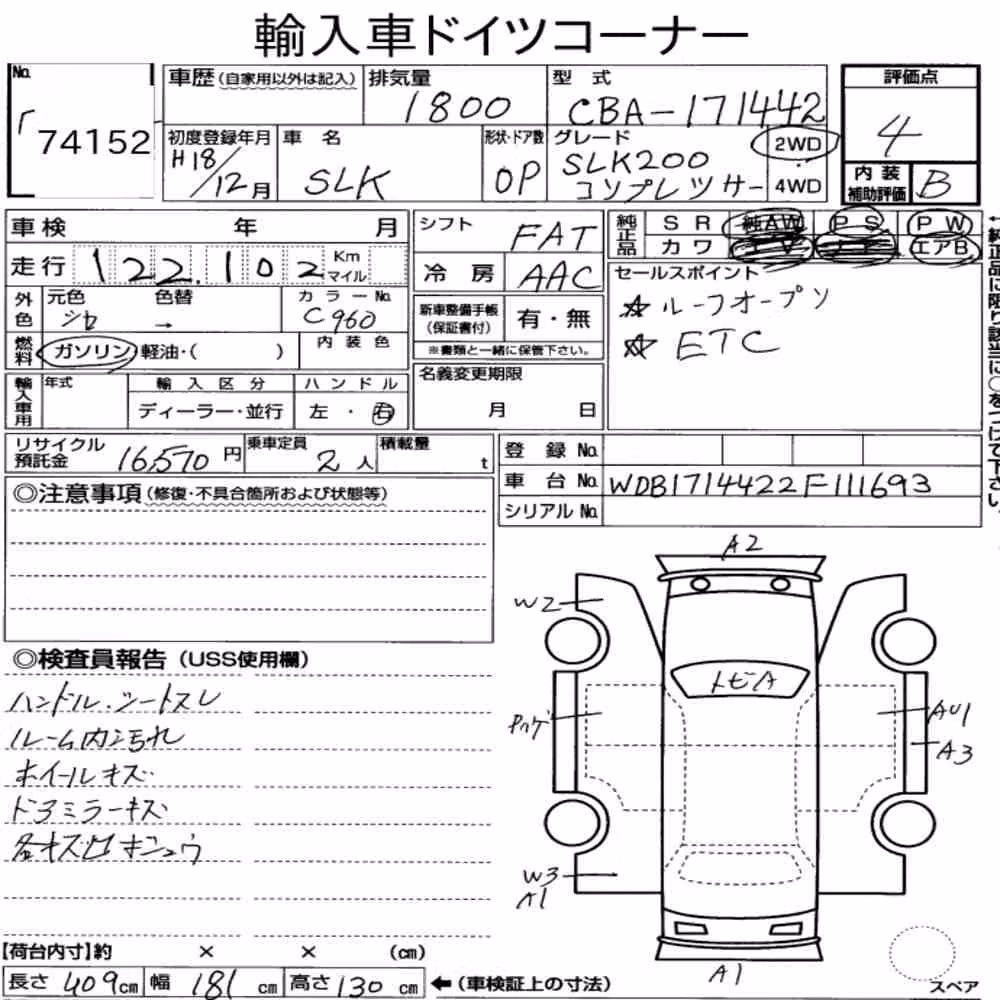 輸入車ドイツコーナー
No. 車歴 (自家用以外は記入) 排気量 型式 評価点
74152 1800 CBA-171442 4
初度登録年月 車名 形状・ドア数 グレード 2WD
H18/12月 SLK OP SLK200 コンプレッサー 4WD
内装補助評価 B
車検 年 月
走行 122,102 Km マイル
外色 元色 色替 カラーNo.
シロ → C960
燃料 ガソリン 軽油・( ) 内装色
輸入車用 年式 輸入区分 ハンドル
ディーラー・並行 左・右
シフト FAT
冷房 AAC
新車整備手帳 (保証書付) 有・無
※書類と一緒に保管下さい。
名義変更期限
月 日
純正品 SR 純AW PS PW
カワ エアB
←純正品に限り該当に○をつけて下さい。
セールスポイント
☆ルーフオープン
☆ETC
リサイクル預託金 16,570円 乗車定員 2人 積載量 t
登録No.
車台No. WDB1714422F111693
シリアルNo.
◎注意事項 (修復・不具合箇所および状態等)
◎検査員報告 (USS使用欄)
ハンドル・シートスレ
ルーム内汚れ
ホイールキズ
ドアミラーキズ
各キズ凹キュウ
A2
W2
トビA
AU1
A3
W3
A1
A1
スペア
【荷台内寸】約 × × (cm)
長さ 409cm 幅 181cm 高さ 130cm ←(車検証上の寸法)